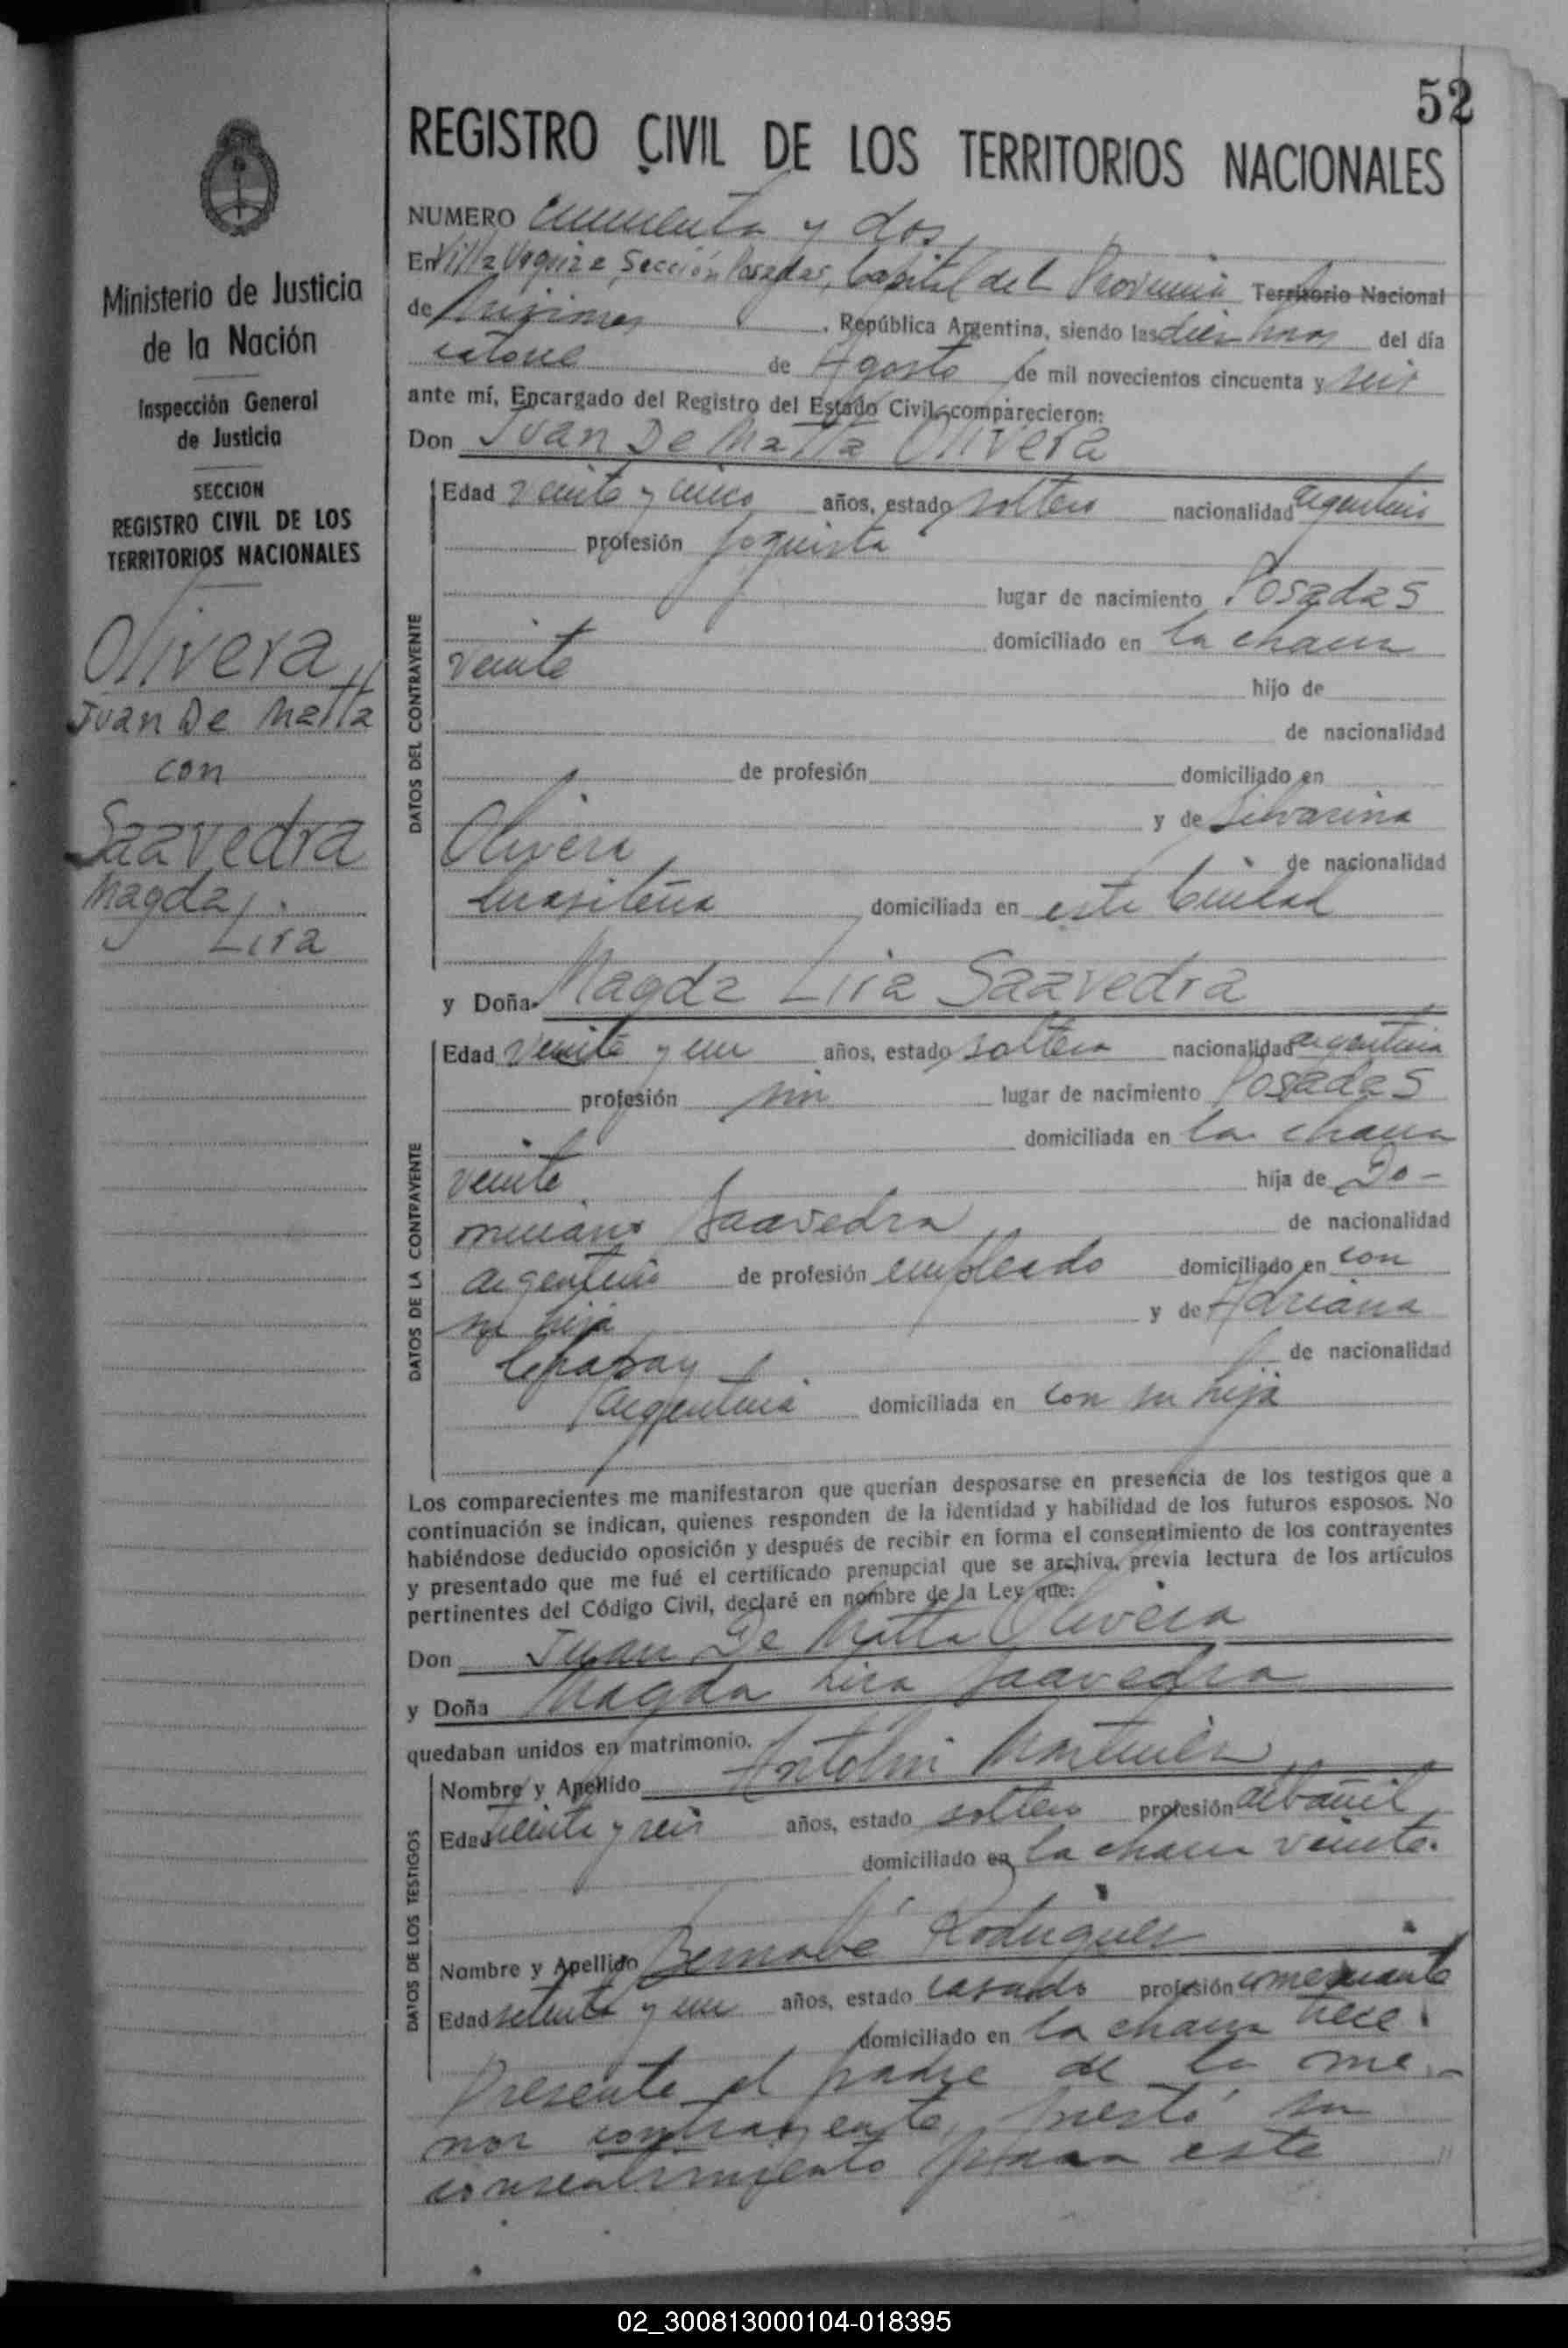 52
REGISTRO CIVIL DE LOS TERRITORIOS NACIONALES
Ministerio de Justicia
de la Nación
Inspección General
de Justicia
SECCION
REGISTRO CIVIL DE LOS
TERRITORIOS NACIONALES
Olivera
Juan De Matta
con
Saavedra
Magda
Lira
NUMERO cincuenta y dos
En Villa Urquiza, Sección Posadas, Capital de la Provincia Territorio Nacional
de Misiones , República Argentina, siendo las diez horas del día
catorce de Agosto de mil novecientos cincuenta y seis
ante mí, Encargado del Registro del Estado Civil, comparecieron:
Don Juan De Matta Olivera
DATOS DEL CONTRAYENTE
Edad veinte y cinco años, estado soltero nacionalidad argentino
profesión foguista
lugar de nacimiento Posadas
domiciliado en la chacra
veinte hijo de
de nacionalidad
de profesión domiciliado en
y de Silvarina
Olivera de nacionalidad
brasileña domiciliada en esta Ciudad
y Doña Magda Lira Saavedra
DATOS DE LA CONTRAYENTE
Edad veinte y un años, estado soltera nacionalidad argentina
profesión sin lugar de nacimiento Posadas
domiciliada en la chacra
veinte hija de Do-
miciano Saavedra de nacionalidad
argentino de profesión empleado domiciliado en con
su hija y de Adriana
de nacionalidad
argentina domiciliada en con su hija
Los comparecientes me manifestaron que querían desposarse en presencia de los testigos que a
continuación se indican, quienes responden de la identidad y habilidad de los futuros esposos. No
habiéndose deducido oposición y después de recibir en forma el consentimiento de los contrayentes
y presentado que me fué el certificado prenupcial que se archiva, previa lectura de los artículos
pertinentes del Código Civil, declaré en nombre de la Ley que:
Don Juan De Matta Olivera
y Doña Magda Lira Saavedra
quedaban unidos en matrimonio.
DATOS DE LOS TESTIGOS
Nombre y Apellido Antolin Martinez
Edad treinta y seis años, estado soltero profesión albañil
domiciliado en la chacra veinte.
Nombre y Apellido Bernabé Rodriguez
Edad setenta y un años, estado casado profesión comerciante
domiciliado en la chacra trece.
Presente el padre de la me-
nor contrayente, prestó su
consentimiento para este
02_300813000104-018395